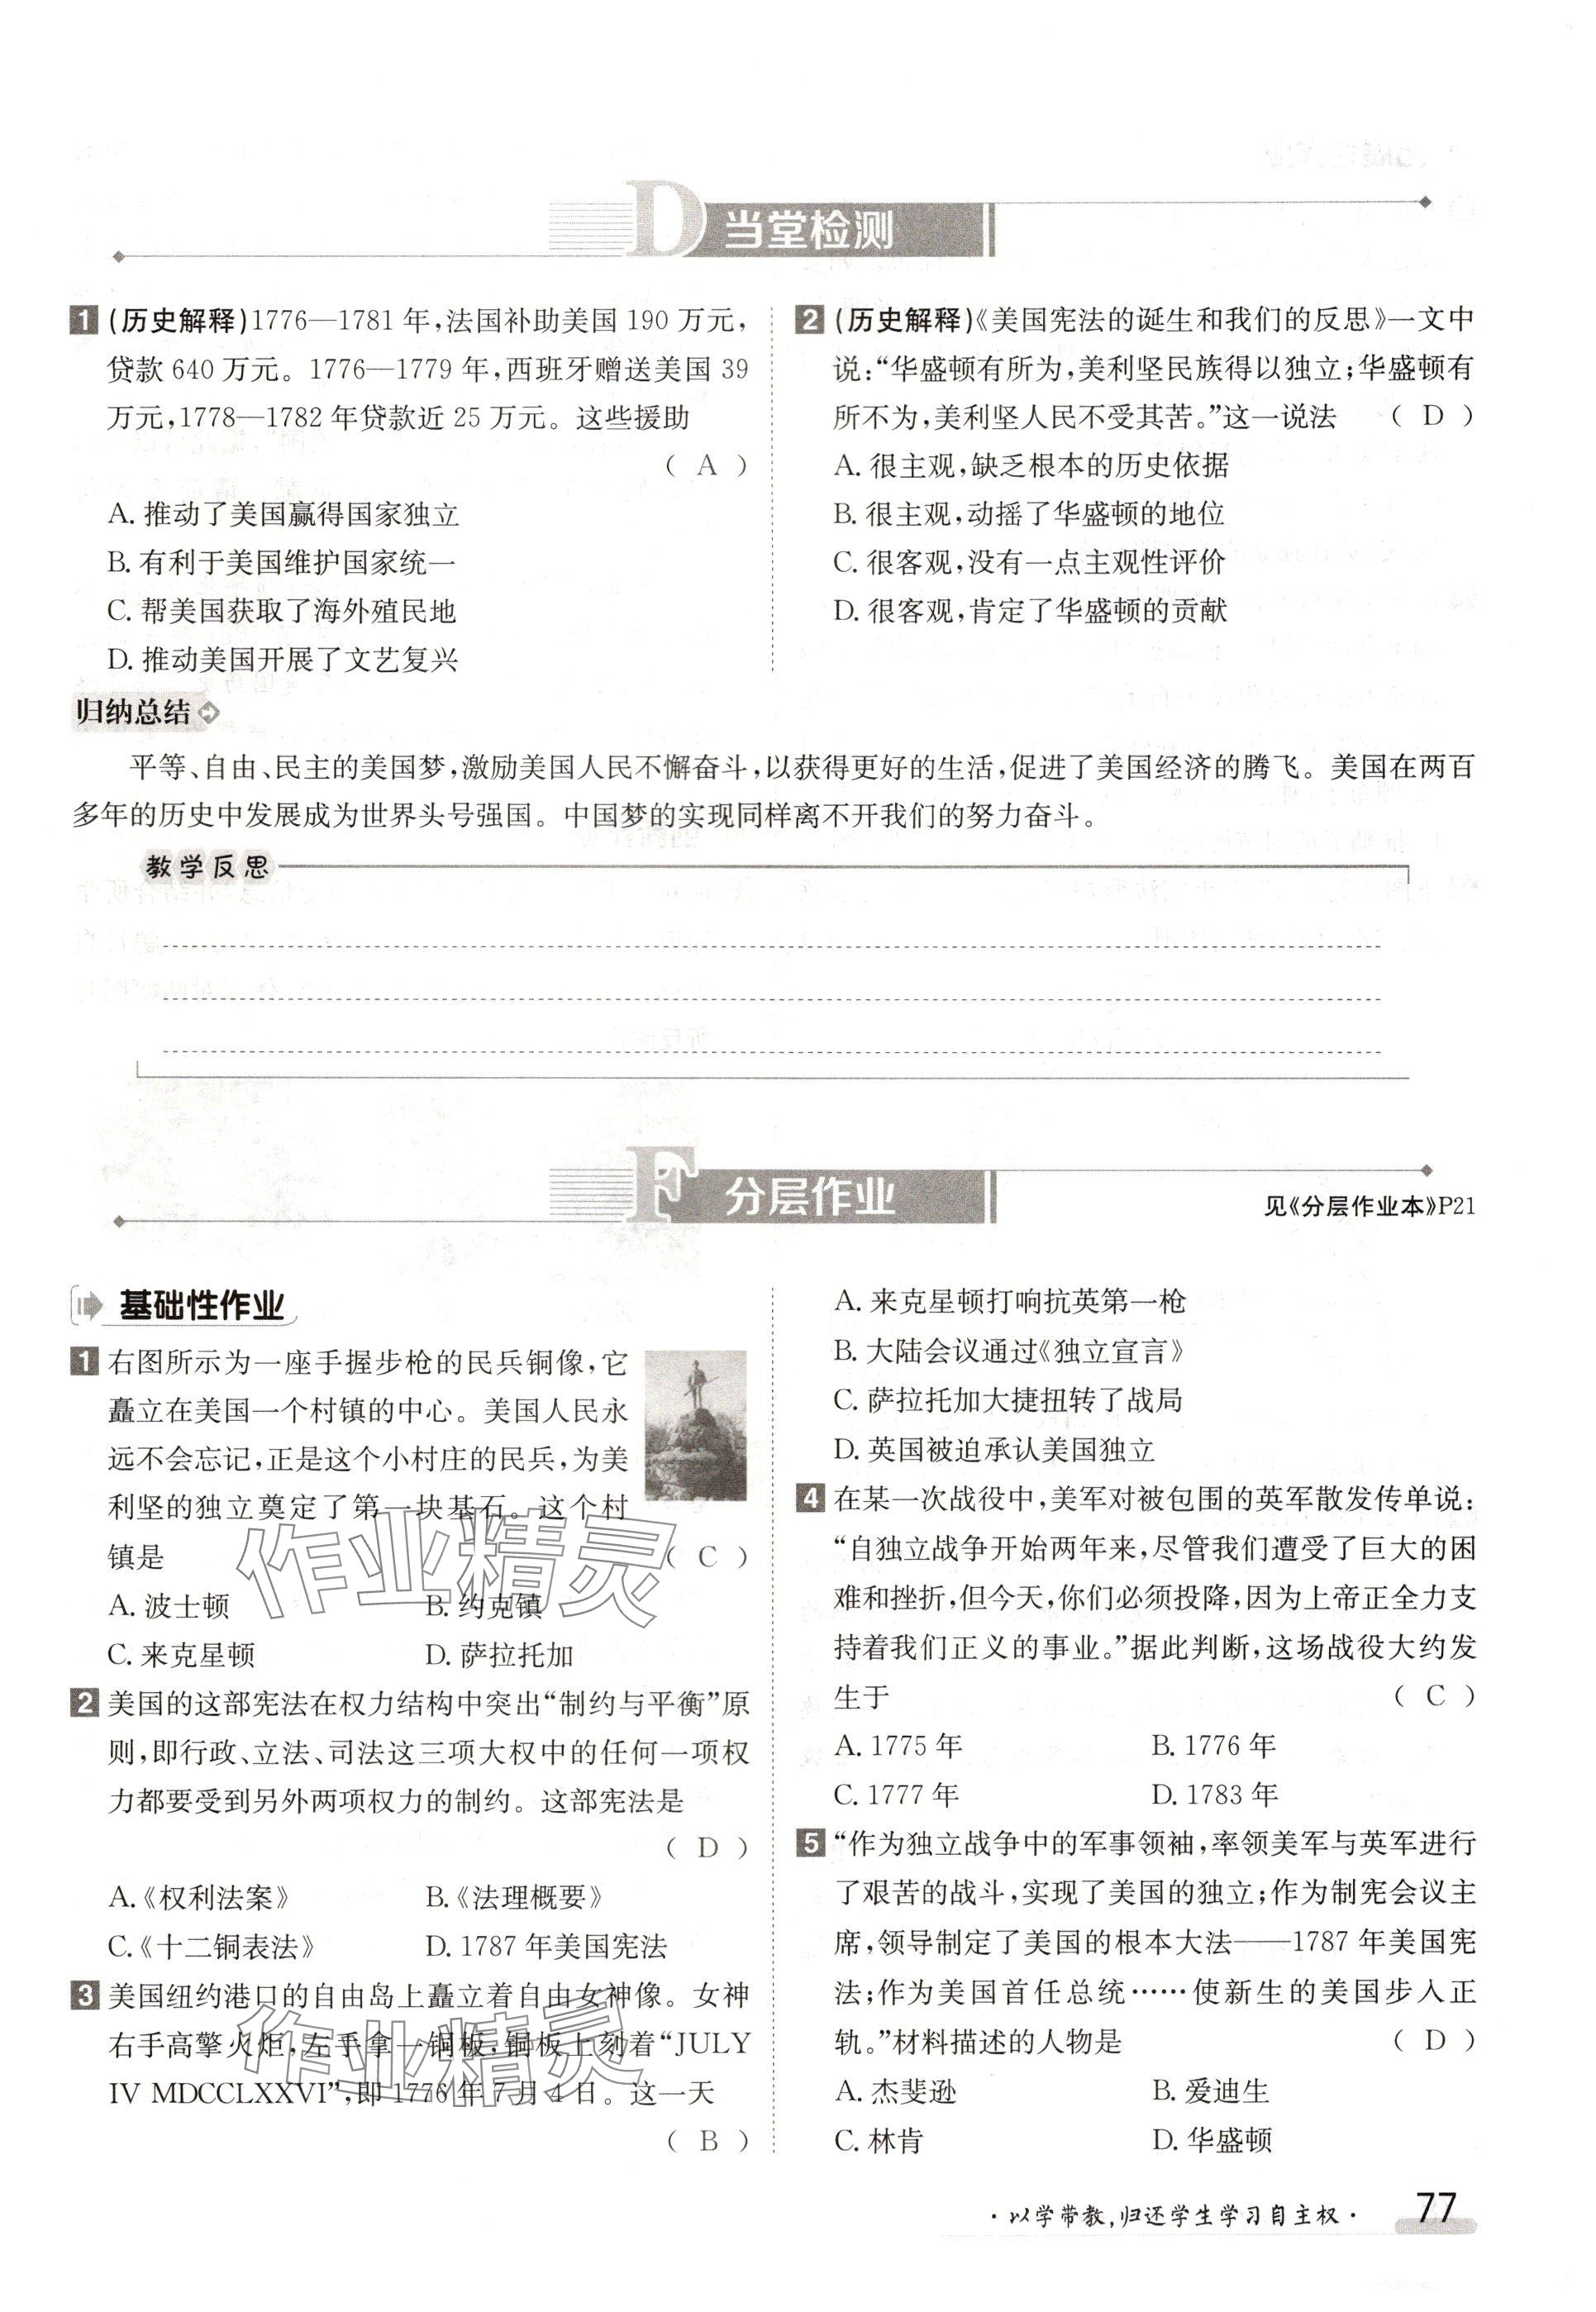 D 当堂检测
1 (历史解释)1776—1781 年,法国补助美国 190 万元,
贷款 640 万元。1776—1779 年,西班牙赠送美国 39
万元,1778—1782 年贷款近 25 万元。这些援助
( A )
A. 推动了美国赢得国家独立
B. 有利于美国维护国家统一
C. 帮美国获取了海外殖民地
D. 推动美国开展了文艺复兴
2 (历史解释)《美国宪法的诞生和我们的反思》一文中
说:“华盛顿有所为,美利坚民族得以独立;华盛顿有
所不为,美利坚人民不受其苦。”这一说法 ( D )
A. 很主观,缺乏根本的历史依据
B. 很主观,动摇了华盛顿的地位
C. 很客观,没有一点主观性评价
D. 很客观,肯定了华盛顿的贡献
归纳总结
平等、自由、民主的美国梦,激励美国人民不懈奋斗,以获得更好的生活,促进了美国经济的腾飞。美国在两百
多年的历史中发展成为世界头号强国。中国梦的实现同样离不开我们的努力奋斗。
教学反思
F 分层作业
见《分层作业本》P21
基础性作业
1 右图所示为一座手握步枪的民兵铜像,它
矗立在美国一个村镇的中心。美国人民永
远不会忘记,正是这个小村庄的民兵,为美
利坚的独立奠定了第一块基石。这个村
镇是 ( C )
A. 波士顿 B. 约克镇
C. 来克星顿 D. 萨拉托加
2 美国的这部宪法在权力结构中突出“制约与平衡”原
则,即行政、立法、司法这三项大权中的任何一项权
力都要受到另外两项权力的制约。这部宪法是
( D )
A.《权利法案》 B.《法理概要》
C.《十二铜表法》 D. 1787 年美国宪法
3 美国纽约港口的自由岛上矗立着自由女神像。女神
右手高擎火炬,左手拿一铜板,铜板上刻着“JULY
IV MDCCLXXVI”,即 1776 年 7 月 4 日。这一天
( B )
A. 来克星顿打响抗英第一枪
B. 大陆会议通过《独立宣言》
C. 萨拉托加大捷扭转了战局
D. 英国被迫承认美国独立
4 在某一次战役中,美军对被包围的英军散发传单说:
“自独立战争开始两年来,尽管我们遭受了巨大的困
难和挫折,但今天,你们必须投降,因为上帝正全力支
持着我们正义的事业。”据此判断,这场战役大约发
生于 ( C )
A. 1775 年 B. 1776 年
C. 1777 年 D. 1783 年
5 “作为独立战争中的军事领袖,率领美军与英军进行
了艰苦的战斗,实现了美国的独立;作为制宪会议主
席,领导制定了美国的根本大法——1787 年美国宪
法;作为美国首任总统……使新生的美国步入正
轨。”材料描述的人物是 ( D )
A. 杰斐逊 B. 爱迪生
C. 林肯 D. 华盛顿
作业精灵
作业精灵
·以学带教,归还学生学习自主权· 77